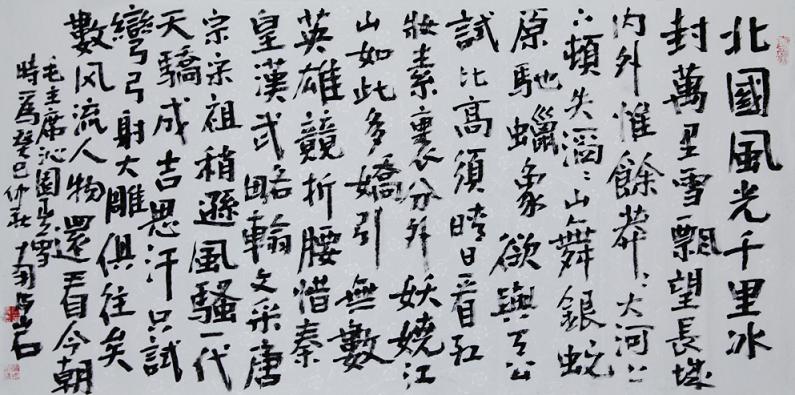 北國風光千里冰
封萬里雪飄望長城
内外惟餘莽〻大河上
下頓失滔〻山舞銀蛇
原馳蠟象欲與天公
試比高須晴日看紅
妝素裹分外妖嬈江
山如此多嬌引無數
英雄競折腰惜秦
皇漢武略輸文采唐
宗宋祖稍遜風騷一代
天驕成吉思汗只試
彎弓射大雕俱往矣
數风流人物還看今朝
毛主席沁園春雪
時爲癸巳仲秋